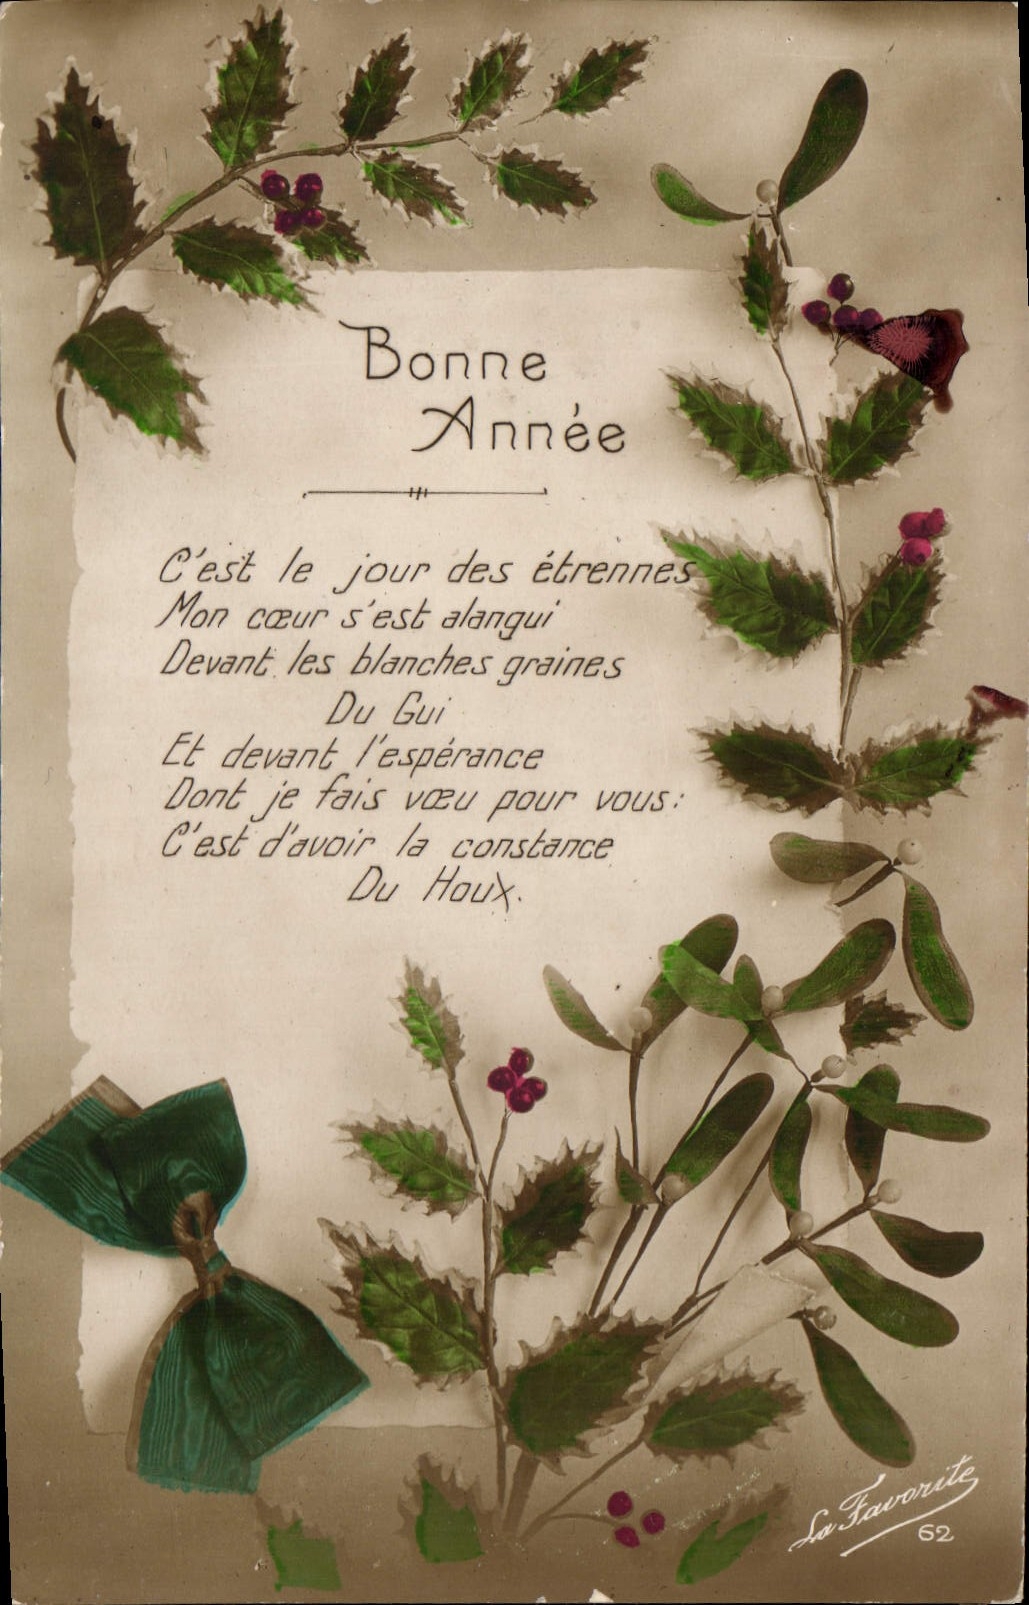 Bonne
Année
C'est le jour des étrennes
Mon cœur s'est alangui
Devant les blanches graines
Du Gui
Et devant l'espérance
Dont je fais vœu pour vous:
C'est d'avoir la constance
Du Houx.
La Favorite
62